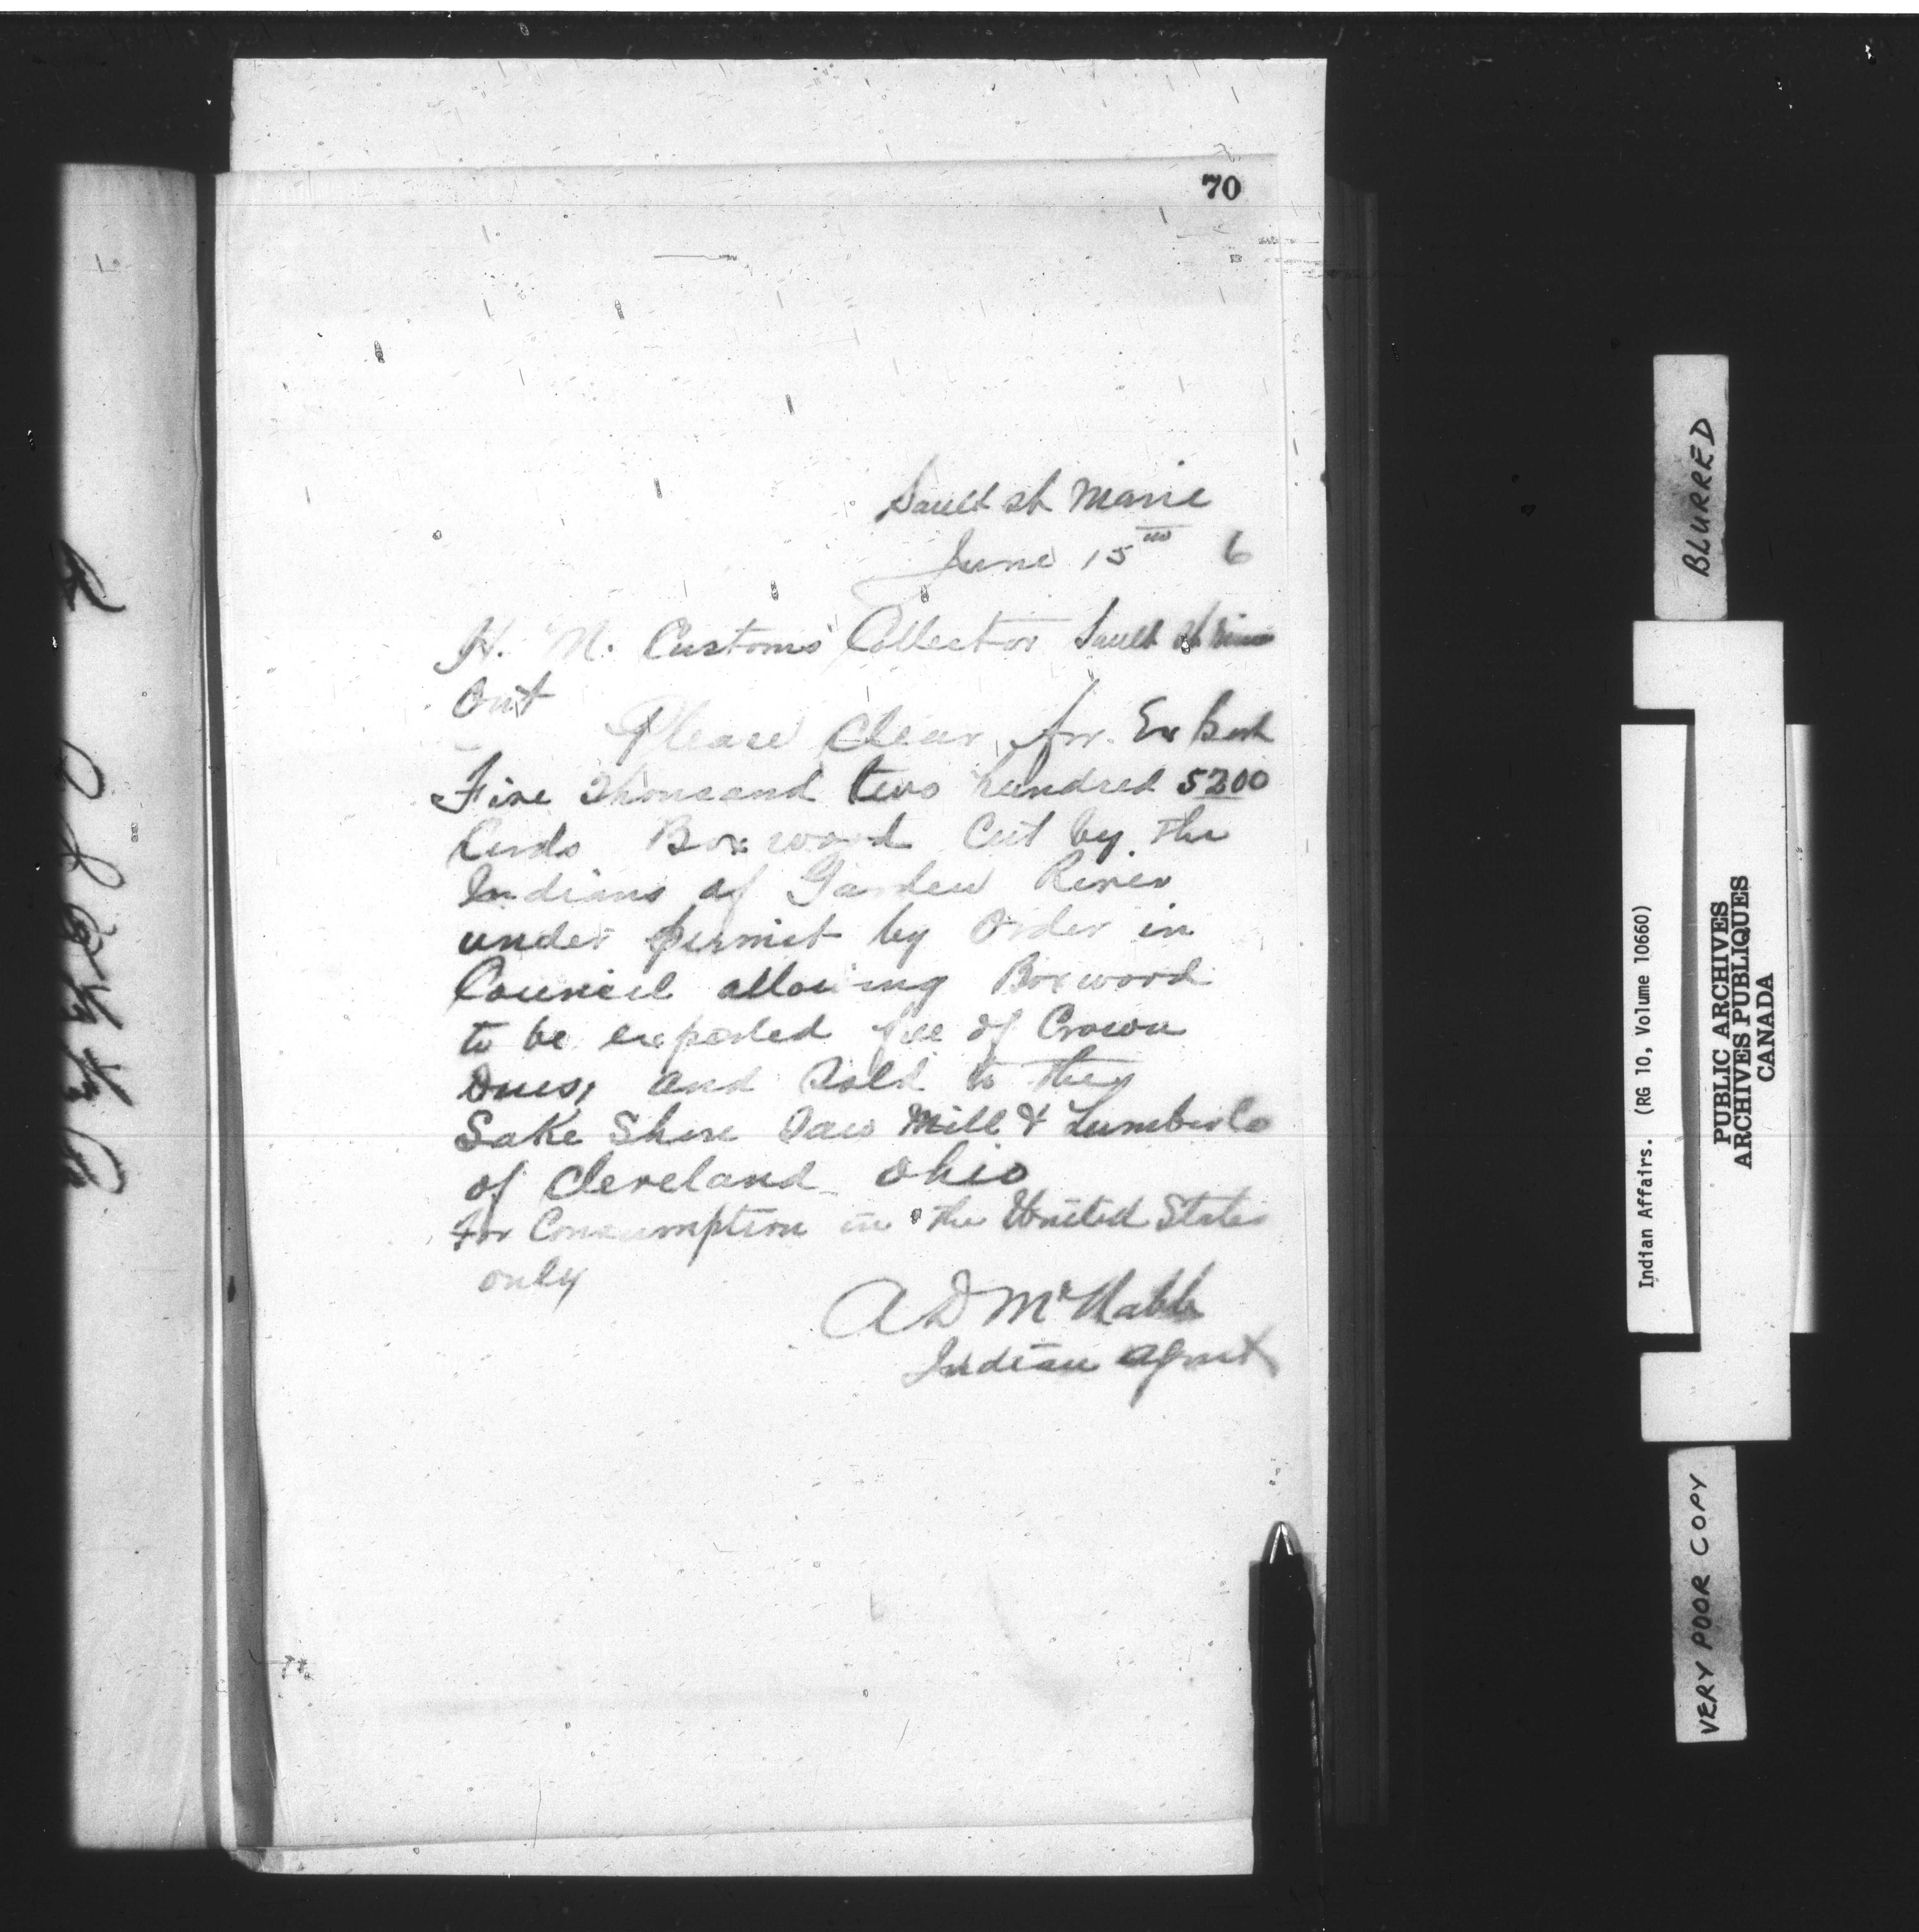 70
Sault st Marie
June 15th 6
H. M. Customs Collector Sault st Marie
Ont
Please Clear for
Five Thousand two hundred 5200
Cords Boxwood Cut by the
Indians of Garden River
under permit by Order in
Council allowing Boxwood
to be exported free of Crown
Dues, and Sold to the
Lake Shore Saw Mill & Lumber Co
of Cleveland Ohio
For Consumption in the United States
only
A D McNabb
Indian Agent
BLURRED
Indian Affairs. (RG 10, Volume 10660)
PUBLIC ARCHIVES
ARCHIVES PUBLIQUES
CANADA
VERY POOR COPY